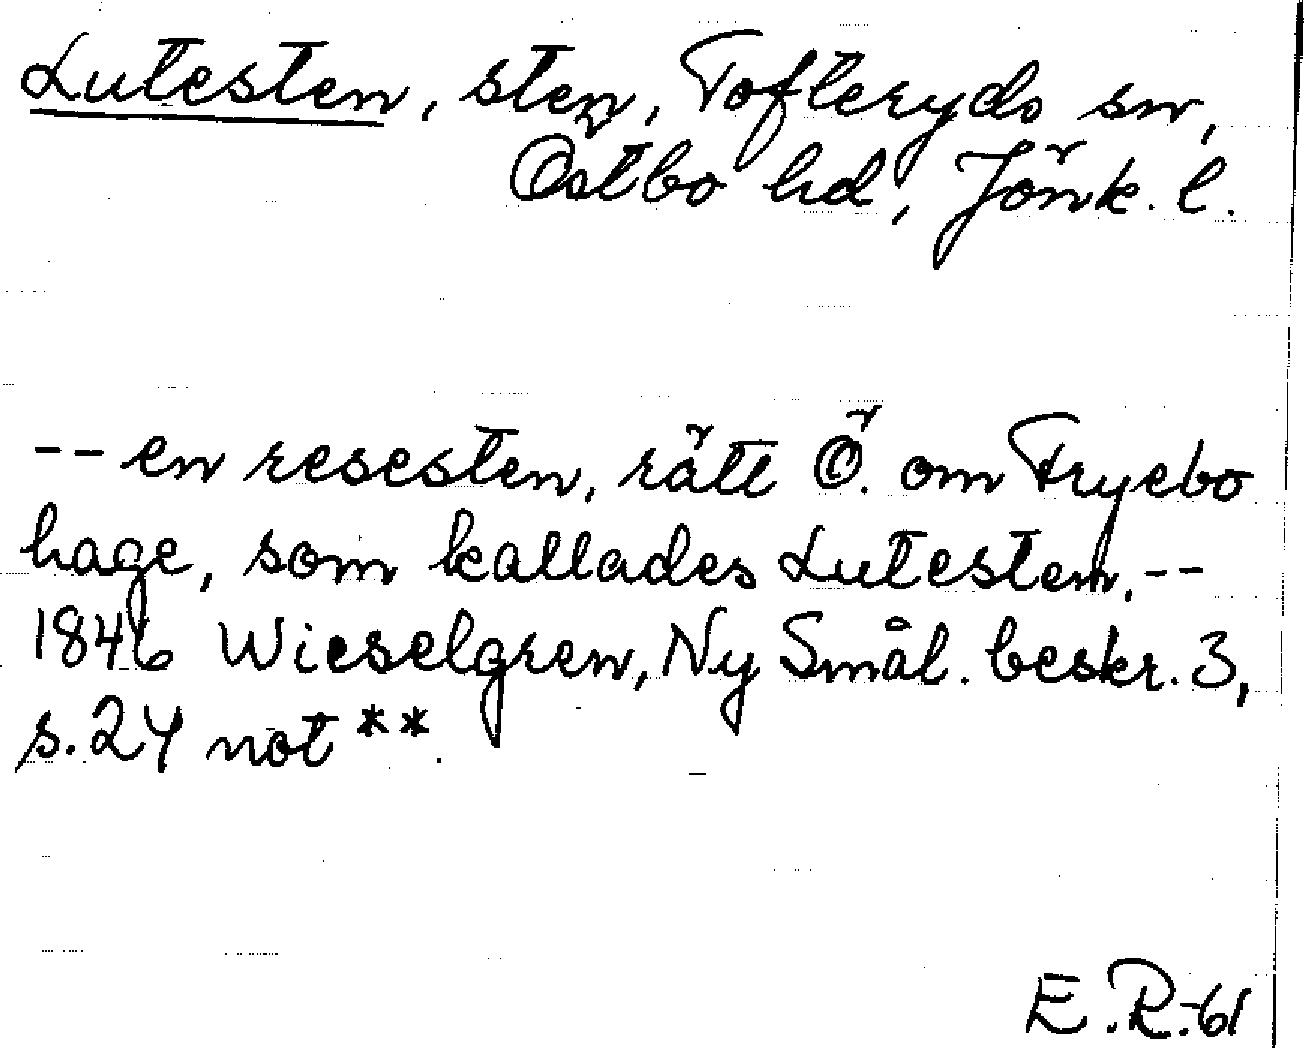 Lutesten, sten, Tofteryds sn,
Östbo hd, Jönk. l.
-- en resesten, rätt Ö. om Fryebo
hage, som kallades Lutesten, --
1846 Wieselgren, Ny Smål. beskr. 3,
s. 24 not **.
E.R.-61